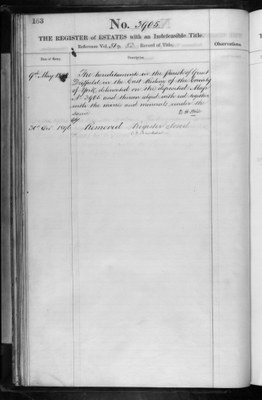 163
No. 3905
THE REGISTER of ESTATES with an Indefeasible Title
Reference Vol. Record of Title,
Observations.
Date of Entry.
Description.
9th May The hereditaments in the Parish of Great
Driffield in the East Riding of the County
of York delineated on the deposited Map
No. 3905 and thereon edged with red together
with the mines and minerals under the
same
Removed